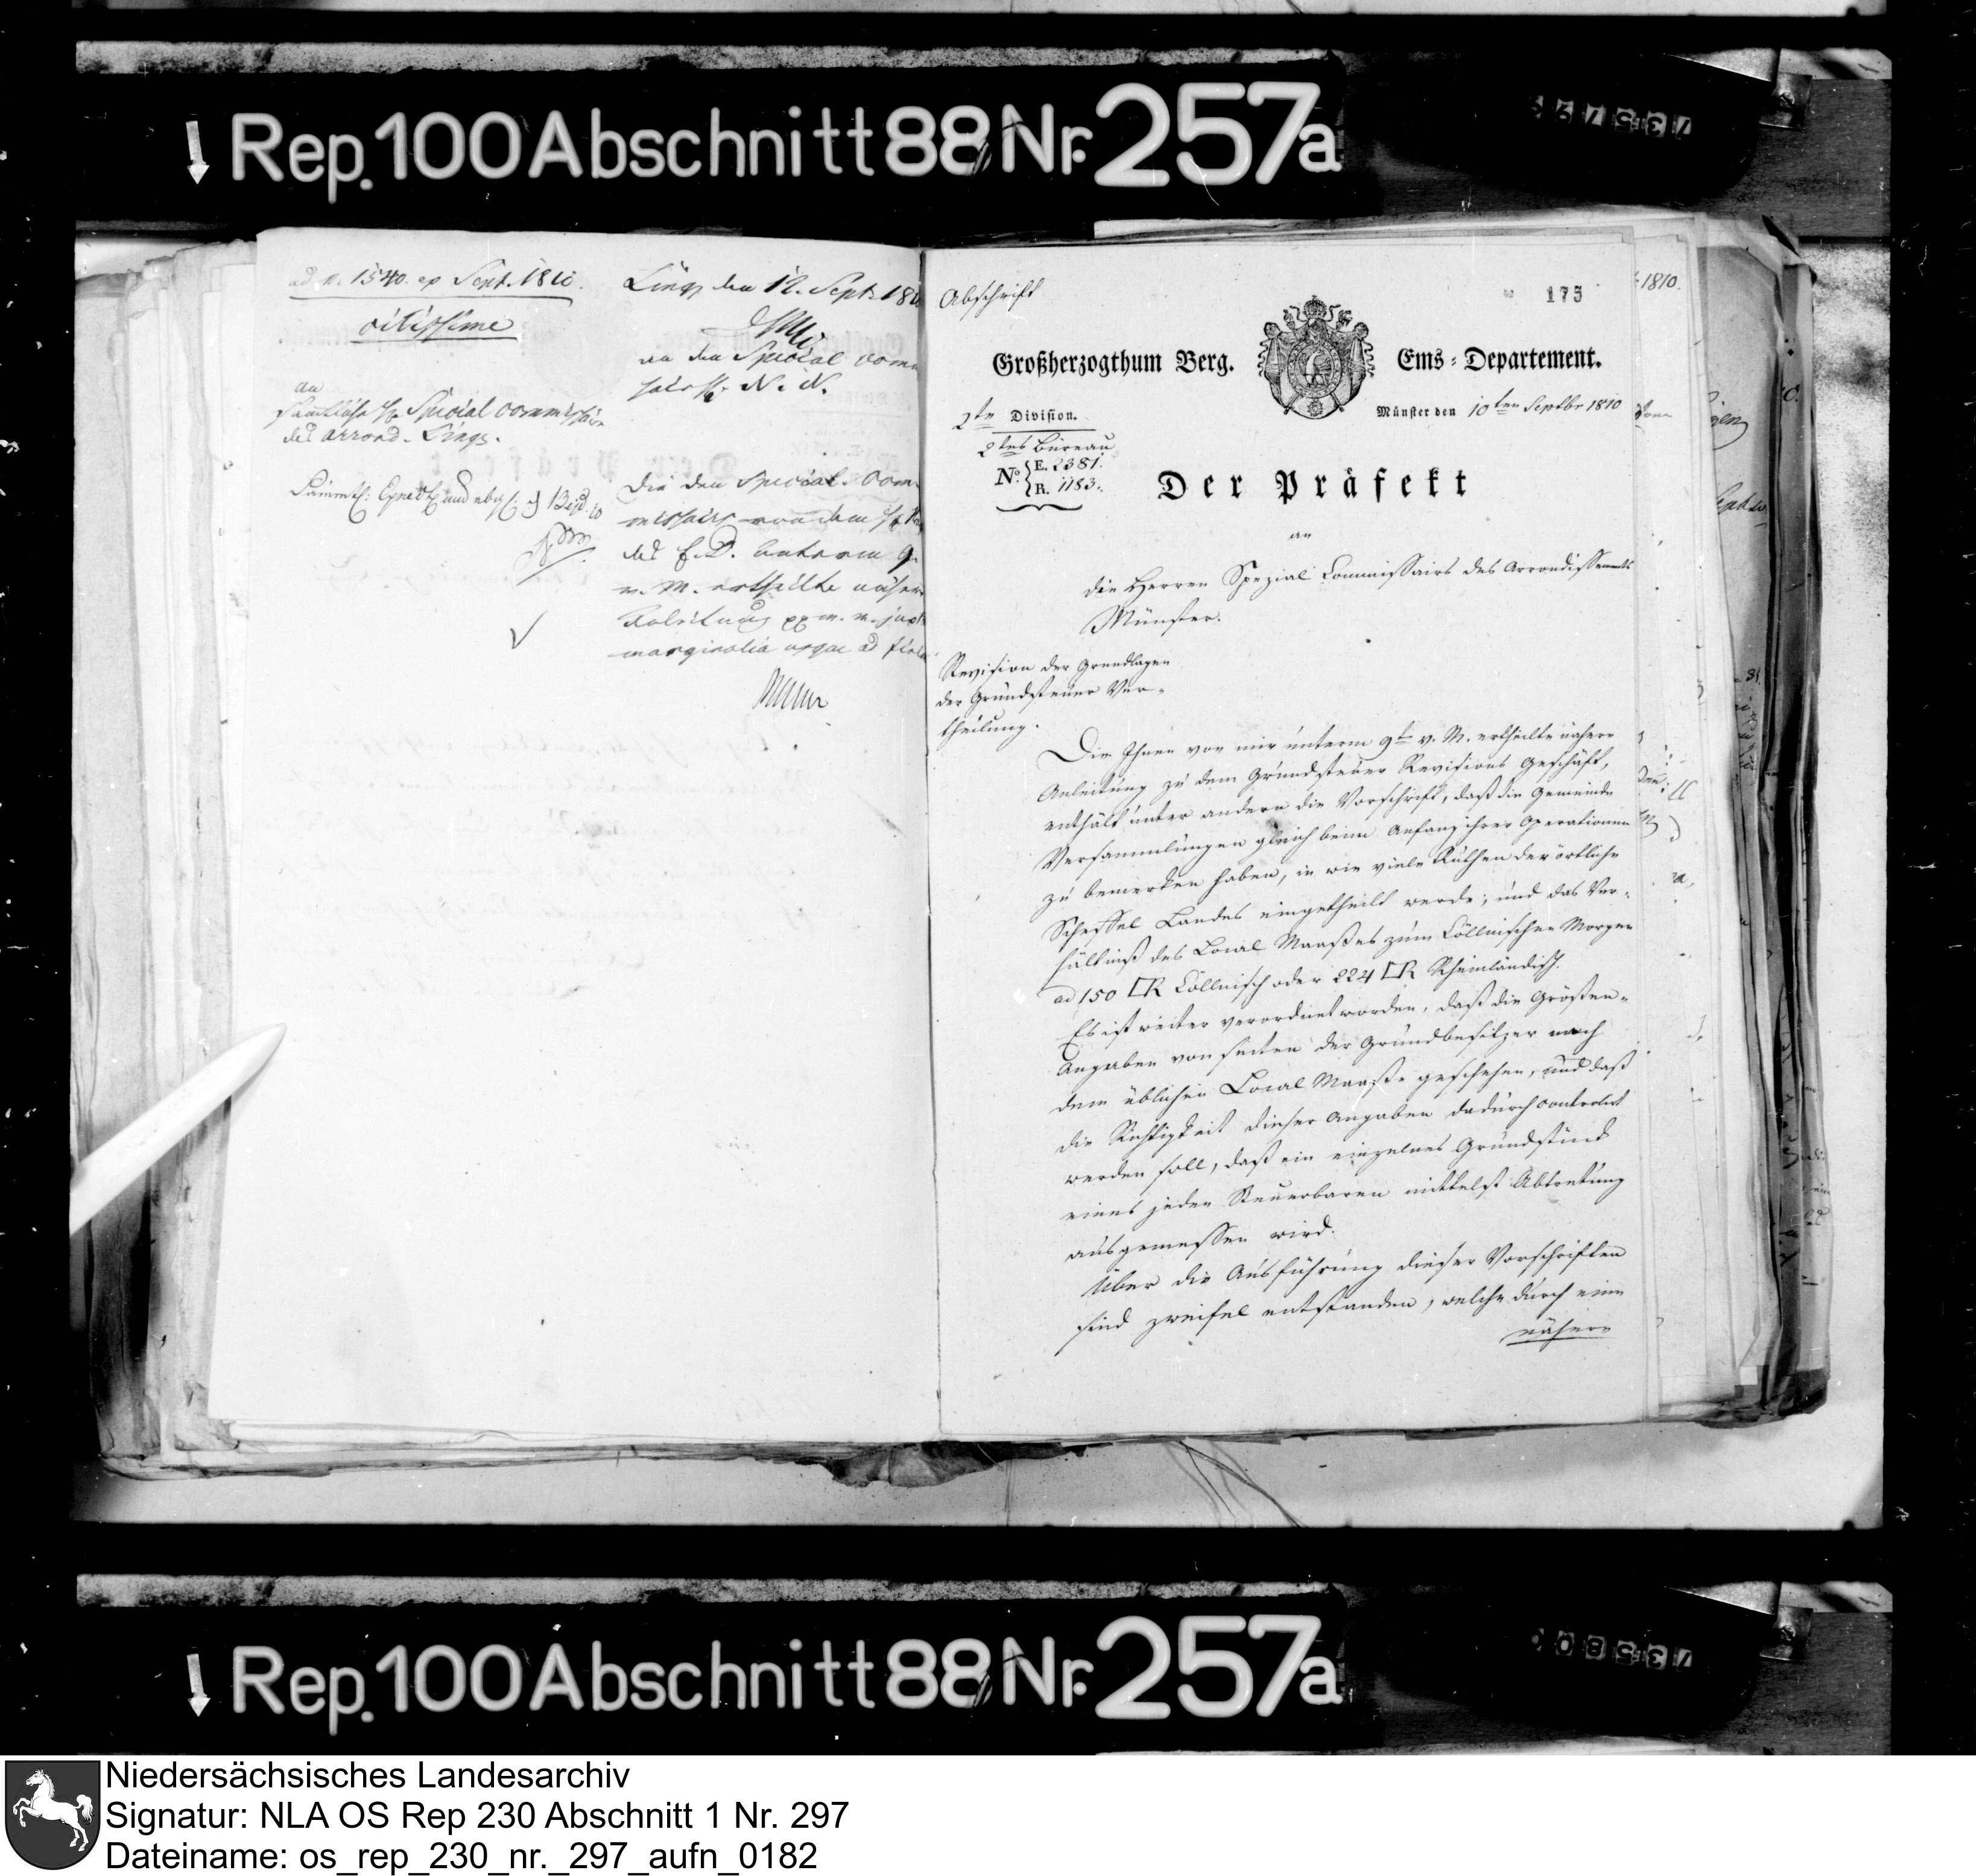 Rep. 100 Abschnitt 88 Nr. 257a
ad n. 1540. ex Sept. 1810.
citissime
an
sämmtliche H. Special Commissairs
des Arrond. Lingen.
Lingen den 12. Sept. 181
an den Special Com
N. N.
Die den Special-Com-
missairs von dem H. 
des E. D. unterm 9.
v. M. ertheilte nähere
Anleitung pp m. m. juxt
marginalia usque ad fin
Abschrift
175
Großherzogthum Berg.
Ems-Departement.
2te Division.
2tes Büreau
Münster den 10ten Septbr 1810
No. E. 2381.
R. 1183.
Der Präfekt
an
die Herren Spezial Commissairs des Arrondissements
Münster.
Revision der Grundlagen
der Grundsteuer Ver-
theilung.
Die Ihnen von mir unterm 9ten v. M. ertheilte nähere
Anleitung zu dem Grundsteuer Revisions Geschäft,
enthält unter andern die Vorschrift, daß die Gemeinde
Versammlungen gleich beim Anfang ihrer Operationen
zu bemerken haben, in wie viele Ruthen der örtliche
Scheffel Landes eingetheilt werde; und das Ver-
hältniß des Local Maaßes zum Cöllnischen Morgen
ad 150 □R Cöllnisch oder 224 □R Rheinländisch.
Es ist weiter verordnet worden, daß die Größen-
Angaben von seiten der Grundbesitzer nach
dem üblichen Local Maaße geschehen, und daß
die Richtigkeit dieser Angaben dadurch controlirt
werden soll, daß ein einzelnes Grundstück
eines jeden Steuerbaren mittelst Abtretung
ausgemessen wird.
Über die Ausführung dieser Vorschriften
sind Zweifel entstanden, welche durch eine
nähere
1810.
Rep. 100 Abschnitt 88 Nr. 257a
Niedersächsisches Landesarchiv
Signatur: NLA OS Rep 230 Abschnitt 1 Nr. 297
Dateiname: os_rep_230_nr._297_aufn_0182